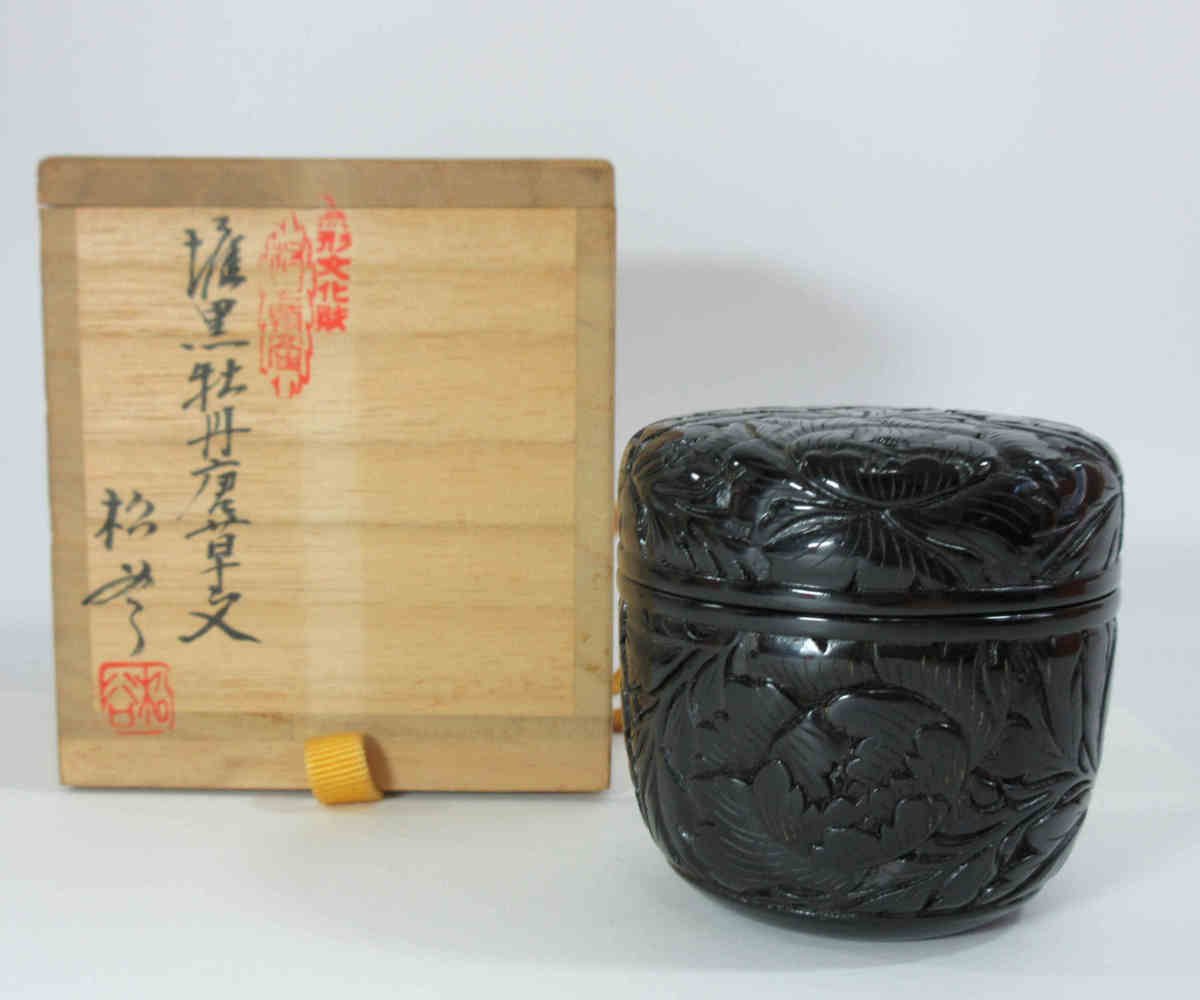 無形文化財
堆黒牡丹唐草文
松谷
松谷